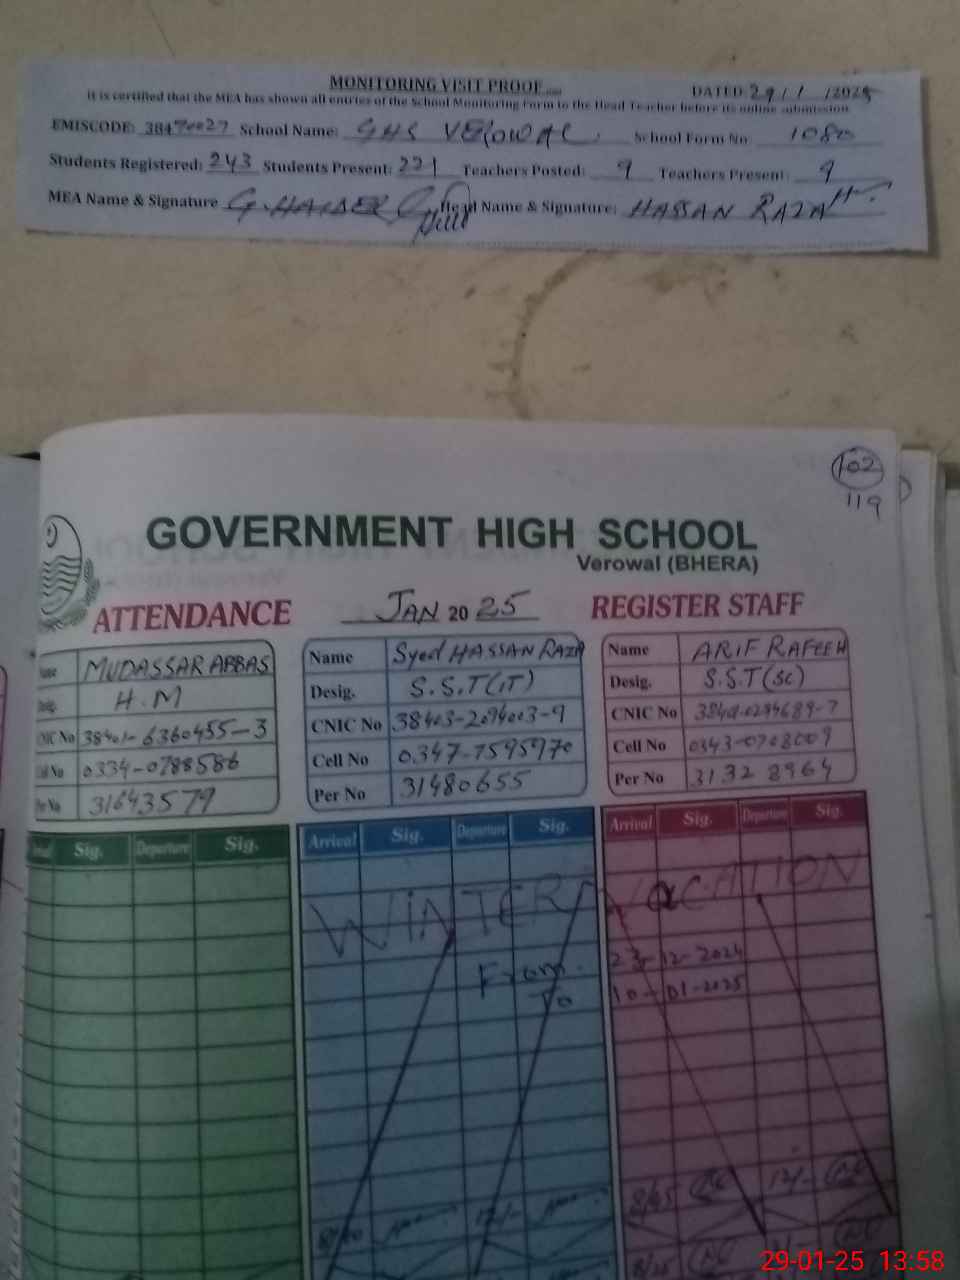 MONITORING VISIT PROOF
DATED 29/1/2025
It is certified that the MEA has shown all entries of the School Monitoring Form to the Head Teacher before its online submission
EMISCODE: 38470027 School Name: GHS VEROWAL School Form No 1080
Students Registered: 243 Students Present: 221 Teachers Posted: 9 Teachers Present: 9
MEA Name & Signature G.HAIDER Head Name & Signature: HASSAN RAZA
102
119
GOVERNMENT HIGH SCHOOL
Verowal (BHERA)
ATTENDANCE JAN 2025 REGISTER STAFF
Name MUDASSAR ABBAS
Desig. H.M
CNIC No 38401-6360455-3
Cell No 0334-0788586
Per No 31643579
Name Syed HASSAN RAZA
Desig. S.S.T(IT)
CNIC No 38403-2094003-9
Cell No 0347-7595970
Per No 31480655
Name ARIF RAFEEH
Desig. S.S.T(SC)
CNIC No
Cell No 0343-0708009
Per No 31328964
Sig. Departure Sig.
Arrival Sig. Departure Sig.
Arrival Sig. Departure Sig.
WINTER VACATION
From 23-12-2024
To 10-01-2025
8/45 12/-
8/40 12/-
8/45
29-01-25 13:58